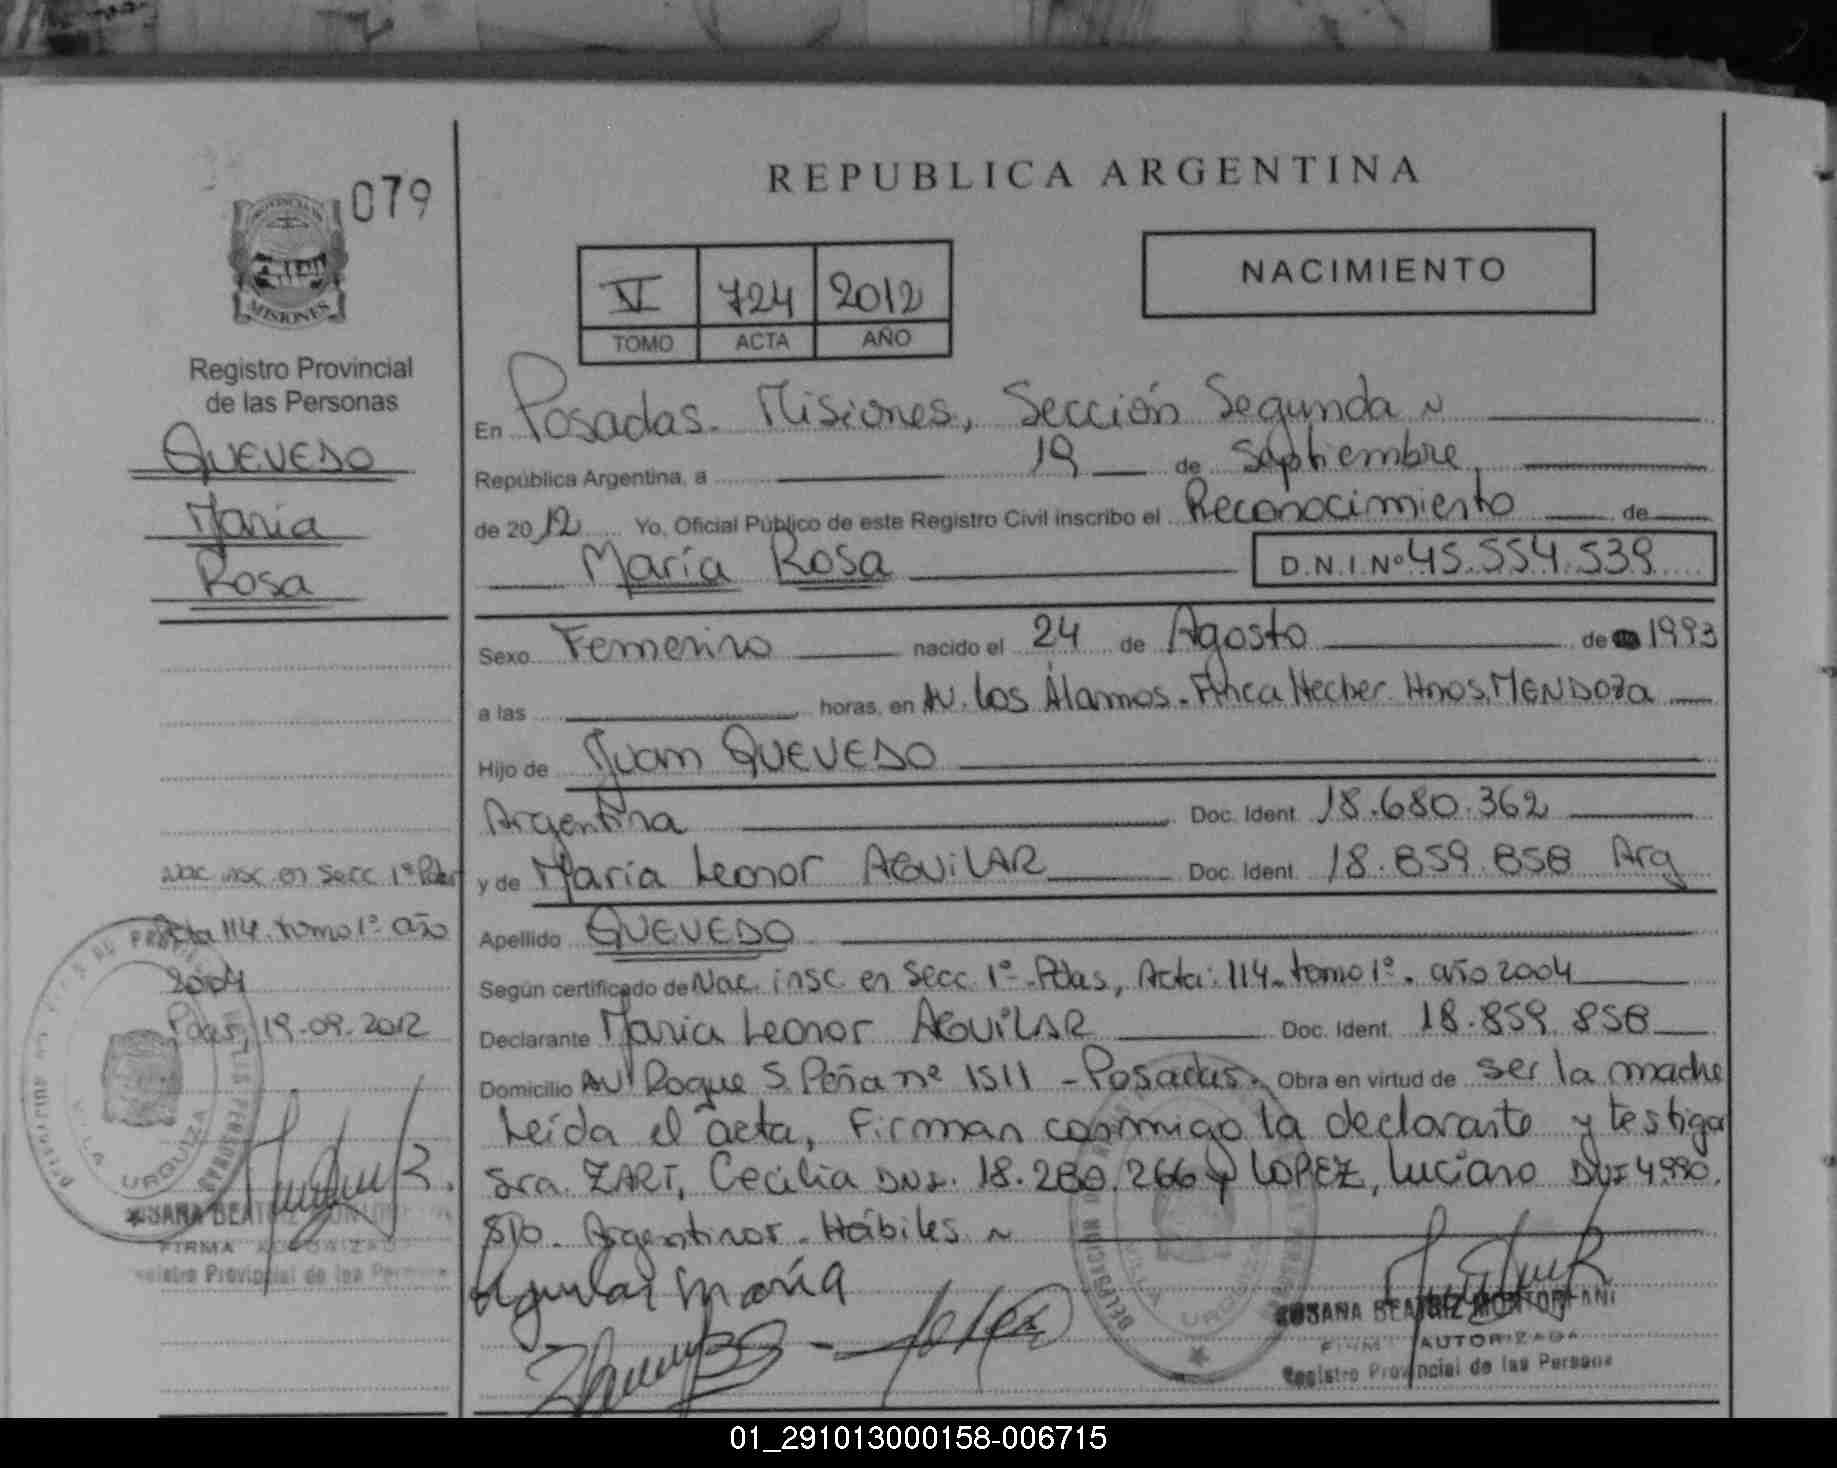 079
PROVINCIA DE
MISIONES
Registro Provincial
de las Personas
QUEVEDO
María
Rosa
Nac insc en Secc 1º Pdas
Acta 114 tomo 1º año
2004
Pdas, 19-09-2012
VILLA URQUIZA
SUSANA BEATRIZ
FIRMA AUTORIZADA
Registro Provincial de las Personas
REPUBLICA ARGENTINA
V 724 2012
TOMO ACTA AÑO
NACIMIENTO
En Posadas. Misiones, Sección Segunda
República Argentina, a 19 de Septiembre
de 2012 Yo, Oficial Público de este Registro Civil inscribo el Reconocimiento de
María Rosa D.N.I.Nº 45.554.539
Sexo Femenino nacido el 24 de Agosto de 1993
a las horas, en Av. Los Álamos. Finca Hecher Hnos. MENDOZA
Hijo de Juan QUEVEDO
Argentina Doc. Ident. 18.680.362
y de María Leonor AGUILAR Doc. Ident. 18.859.858 Arg
Apellido QUEVEDO
Según certificado de Nac. insc en Secc 1º Pdas, Acta: 114. tomo 1º. año 2004
Declarante María Leonor AGUILAR Doc. Ident. 18.859.858
Domicilio AV Roque S. Peña nº 1511 - Posadas. Obra en virtud de ser la madre
Leída el acta, Firman conmigo la declarante y testigos
Sra. ZART, Cecilia DNI. 18.280.266 y LOPEZ, Luciano DNI 4.990.
810. Argentinos. Hábiles
Aguilar María
VILLA URQUIZA
SUSANA BEATRIZ MONTORFANI
FIRMA AUTORIZADA
Registro Provincial de las Personas
01_291013000158-006715